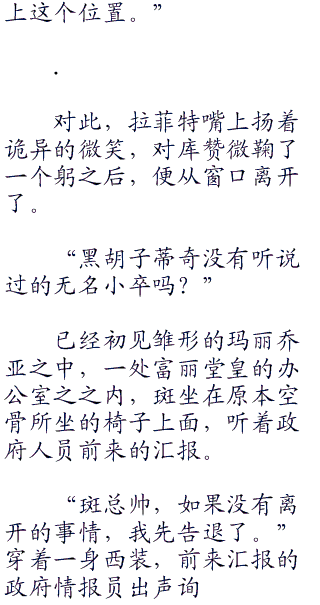 上这个位置。”
.
对此，拉菲特嘴上扬着
诡异的微笑，对库赞微鞠了
一个躬之后，便从窗口离开
了。
“黑胡子蒂奇没有听说
过的无名小卒吗？”
已经初见雏形的玛丽乔
亚之中，一处富丽堂皇的办
公室之之内，斑坐在原本空
骨所坐的椅子上面，听着政
府人员前来的汇报。
“斑总帅，如果没有离
开的事情，我先告退了。”
穿着一身西装，前来汇报的
政府情报员出声询